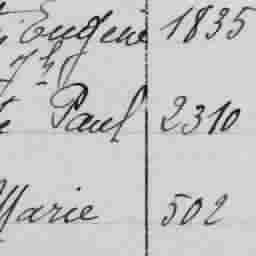 Eugène 1835
Jh
Paul 2310
Marie 502